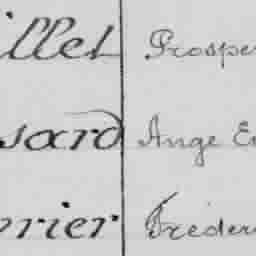 illet Prosper
sard Ange E
rrier Fréder